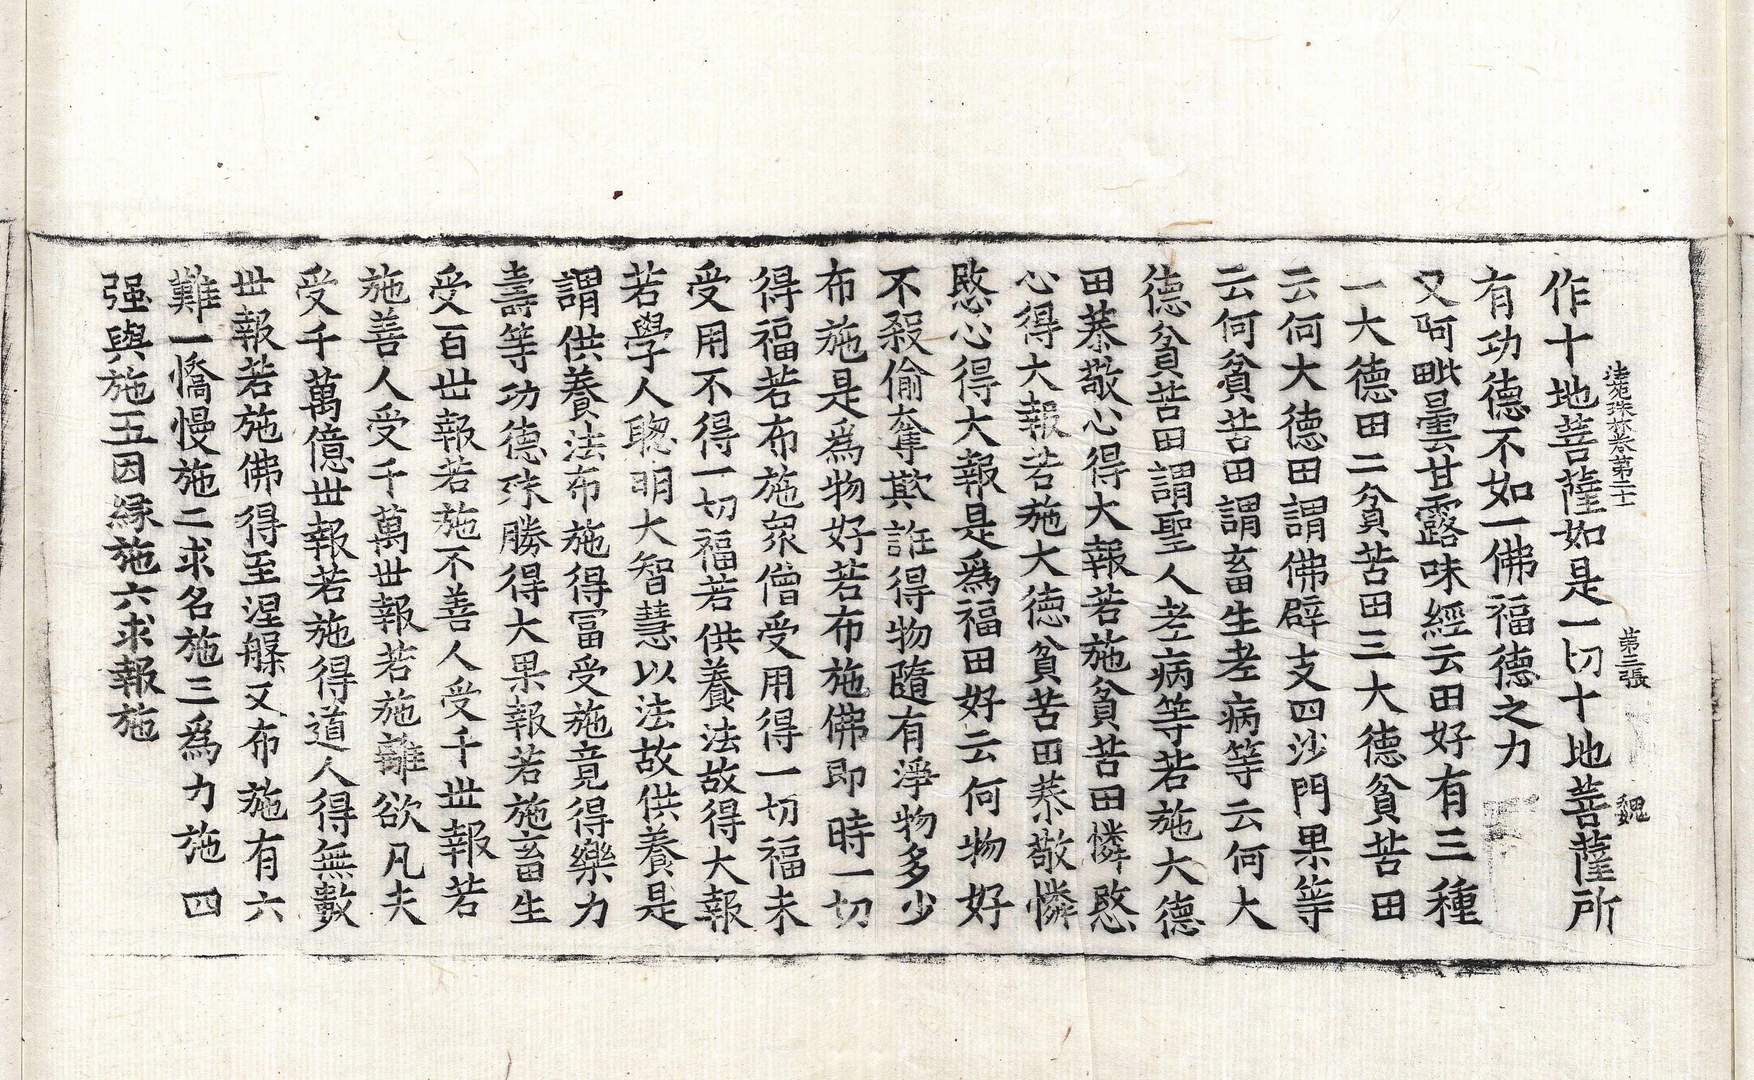 法苑珠林卷第二十一 第三張 魏
作十地菩薩如是一切十地菩薩所
有功德不如一佛福德之力
又阿毗曇甘露味經云田好有三種
一大德田二貧苦田三大德貧苦田
云何大德田謂佛辟支四沙門果等
云何貧苦田謂畜生老病等云何大
德貧苦田謂聖人老病等若施大德
田恭敬心得大報若施貧苦田憐愍
心得大報若施大德貧苦田恭敬憐
愍心得大報是爲福田好云何物好
不殺偷奪欺誑得物隨有淨物多少
布施是爲物好若布施佛即時一切
得福若布施衆僧受用得一切福未
受用不得一切福若供養法故得大報
若學人聦明大智慧以法故供養是
謂供養法布施得冨受施竟得樂力
壽等功德殊勝得大果報若施畜生
受百世報若施不善人受千世報若
施善人受千萬世報若施離欲凡夫
受千萬億世報若施得道人得無數
世報若施佛得至涅槃又布施有六
難一憍慢施二求名施三爲力施四
强與施五因緣施六求報施